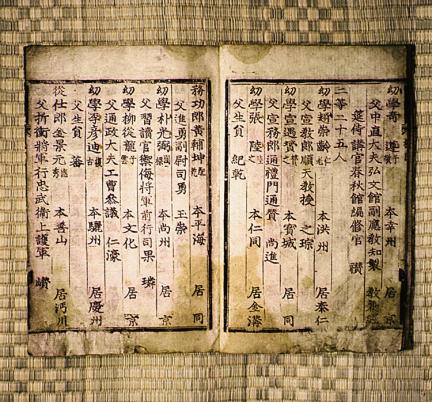 幼學奇遵 本幸州 居京
父中直大夫弘文館副應教知製教兼經
筵侍講官春秋館編修官 禶
二等二十五人
幼學趙崇齡 本洪州 居泰仁
父宣教郎順天教授 之琮
幼學宣遇贇 本寶城 居同
父宣務郎通禮門通贊 尚進
幼學張陸 本仁同 居金溝
父生員 紀乾
務功郎黃輔坤 本平海 居同
父進勇副尉司勇 玉崇
幼學朴光弼 本尚州 居京
父習讀官禦侮將軍前行司果 璘
幼學柳從龍 本文化 居京
父通政大夫工曹參議 仁濠
幼學李彥迪 本驪州 居慶州
父生員 蕃
從仕郎金景元 本善山 居沔川
父折衝將軍行忠武衛上護軍